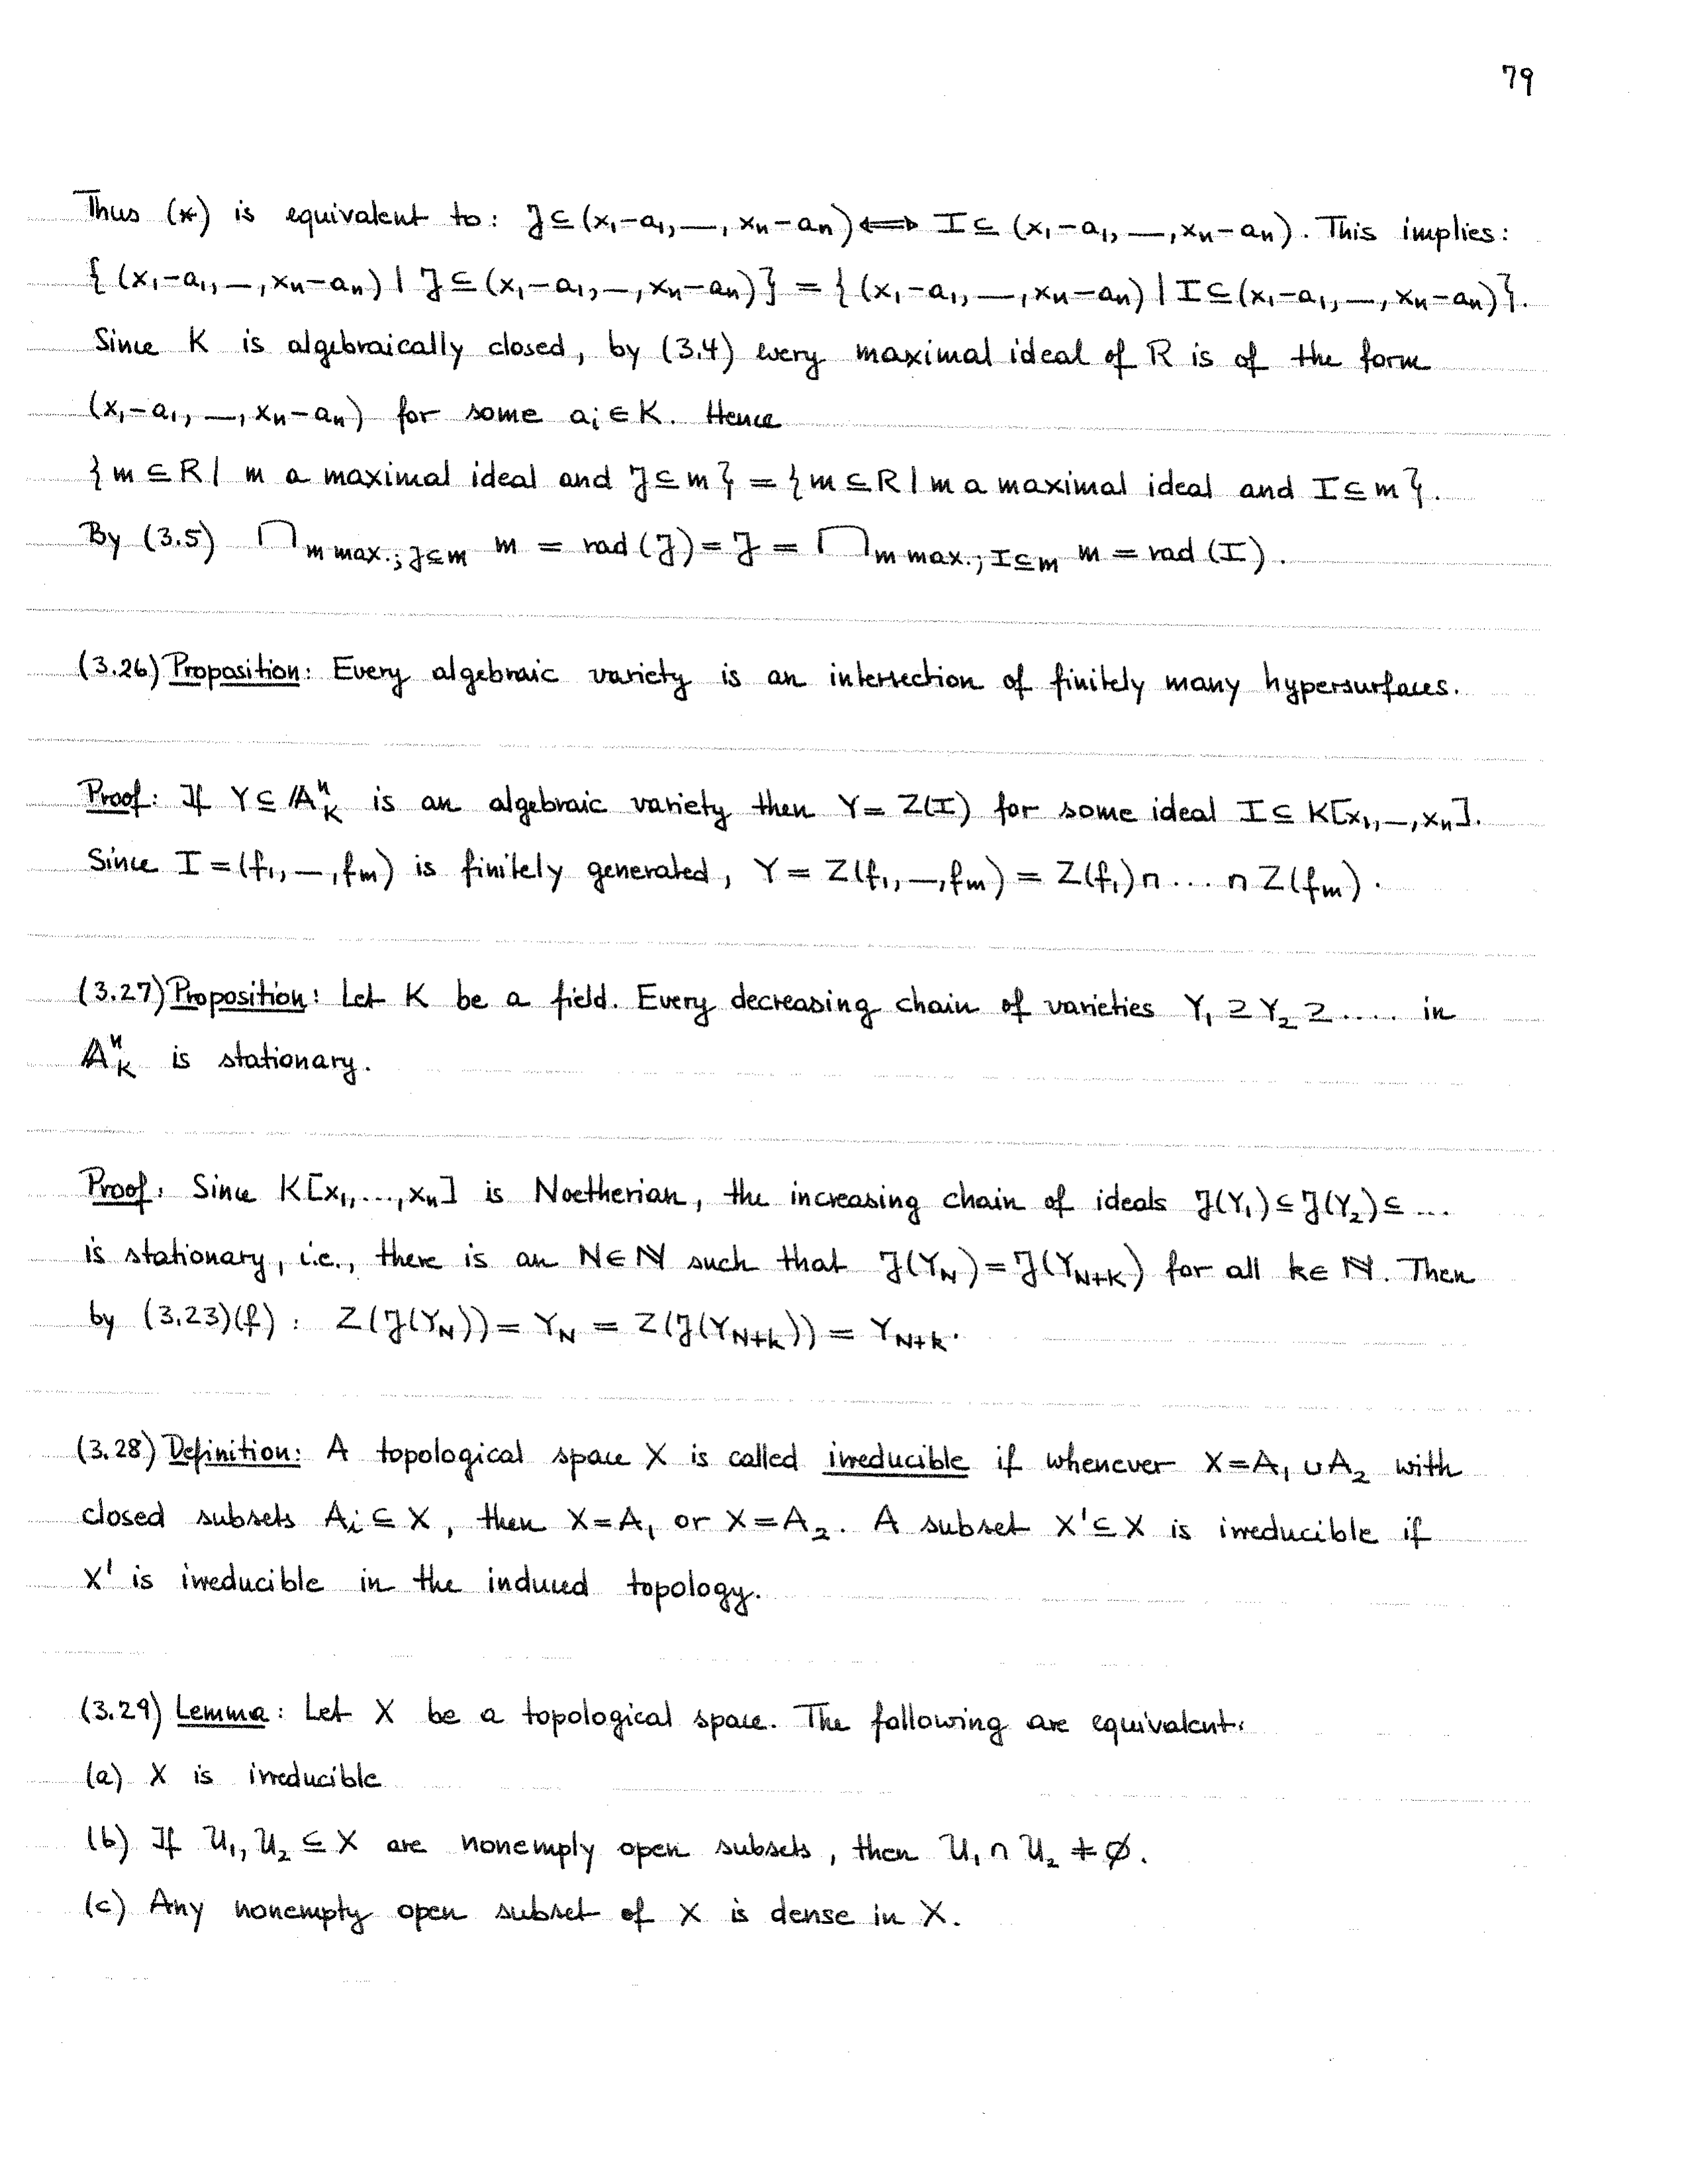 79
Thus (*) is equivalent to: J ⊆ (x₁-a₁, —, xₙ-aₙ) ⟺ I ⊆ (x₁-a₁, —, xₙ-aₙ). This implies:
{ (x₁-a₁, —, xₙ-aₙ) | J ⊆ (x₁-a₁, —, xₙ-aₙ)} = { (x₁-a₁, —, xₙ-aₙ) | I ⊆ (x₁-a₁, —, xₙ-aₙ)}.
Since K is algebraically closed, by (3.4) every maximal ideal of R is of the form
(x₁-a₁, —, xₙ-aₙ) for some aᵢ ∈ K. Hence
{ m ⊆ R | m a maximal ideal and J ⊆ m } = { m ⊆ R | m a maximal ideal and I ⊆ m }.
By (3.5) ⋂_{m max.; J⊆m} m = rad (J) = J = ⋂_{m max.; I⊆m} m = rad (I).
(3.26) Proposition: Every algebraic variety is an intersection of finitely many hypersurfaces.
Proof: If Y ⊆ 𝔸ⁿ_K is an algebraic variety then Y = Z(I) for some ideal I ⊆ K[x₁, —, xₙ].
Since I = (f₁, —, fₘ) is finitely generated, Y = Z(f₁, —, fₘ) = Z(f₁) ∩ .... ∩ Z(fₘ).
(3.27) Proposition: Let K be a field. Every decreasing chain of varieties Y₁ ⊇ Y₂ ⊇ ..... in
𝔸ⁿ_K is stationary.
Proof: Since K[x₁, ..., xₙ] is Noetherian, the increasing chain of ideals J(Y₁) ⊆ J(Y₂) ⊆ ...
is stationary, i.e., there is an N ∈ ℕ such that J(Y_N) = J(Y_{N+k}) for all k ∈ ℕ. Then
by (3.23)(f): Z(J(Y_N)) = Y_N = Z(J(Y_{N+k})) = Y_{N+k}.
(3.28) Definition: A topological space X is called irreducible if whenever X = A₁ ∪ A₂ with
closed subsets Aᵢ ⊆ X, then X = A₁ or X = A₂. A subset X' ⊆ X is irreducible if
X' is irreducible in the induced topology.
(3.29) Lemma: Let X be a topological space. The following are equivalent:
(a) X is irreducible
(b) If U₁, U₂ ⊆ X are nonempty open subsets, then U₁ ∩ U₂ ≠ ∅.
(c) Any nonempty open subset of X is dense in X.